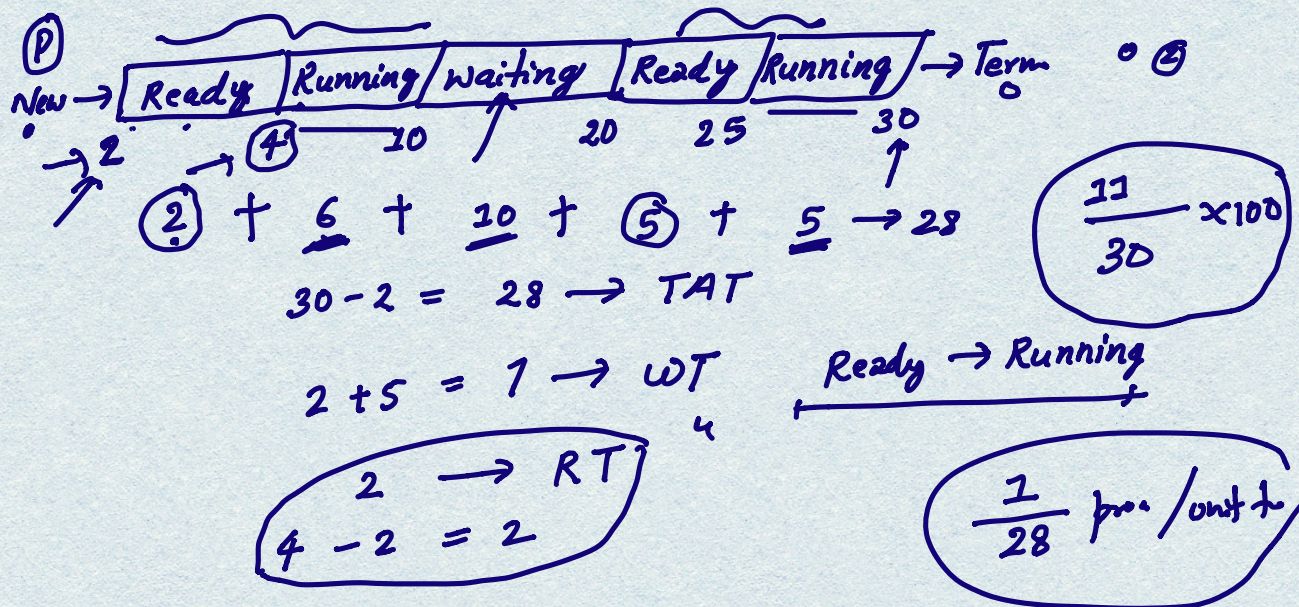 P
New → Ready Running Waiting Ready Running → Term 2
→ 2 → 4 10 20 25 30
2 + 6 + 10 + 5 + 5 → 28
11/30 × 100
30 - 2 = 28 → TAT
2 + 5 = 7 → WT
Ready → Running
2 → RT
4 - 2 = 2
1/28 / unit